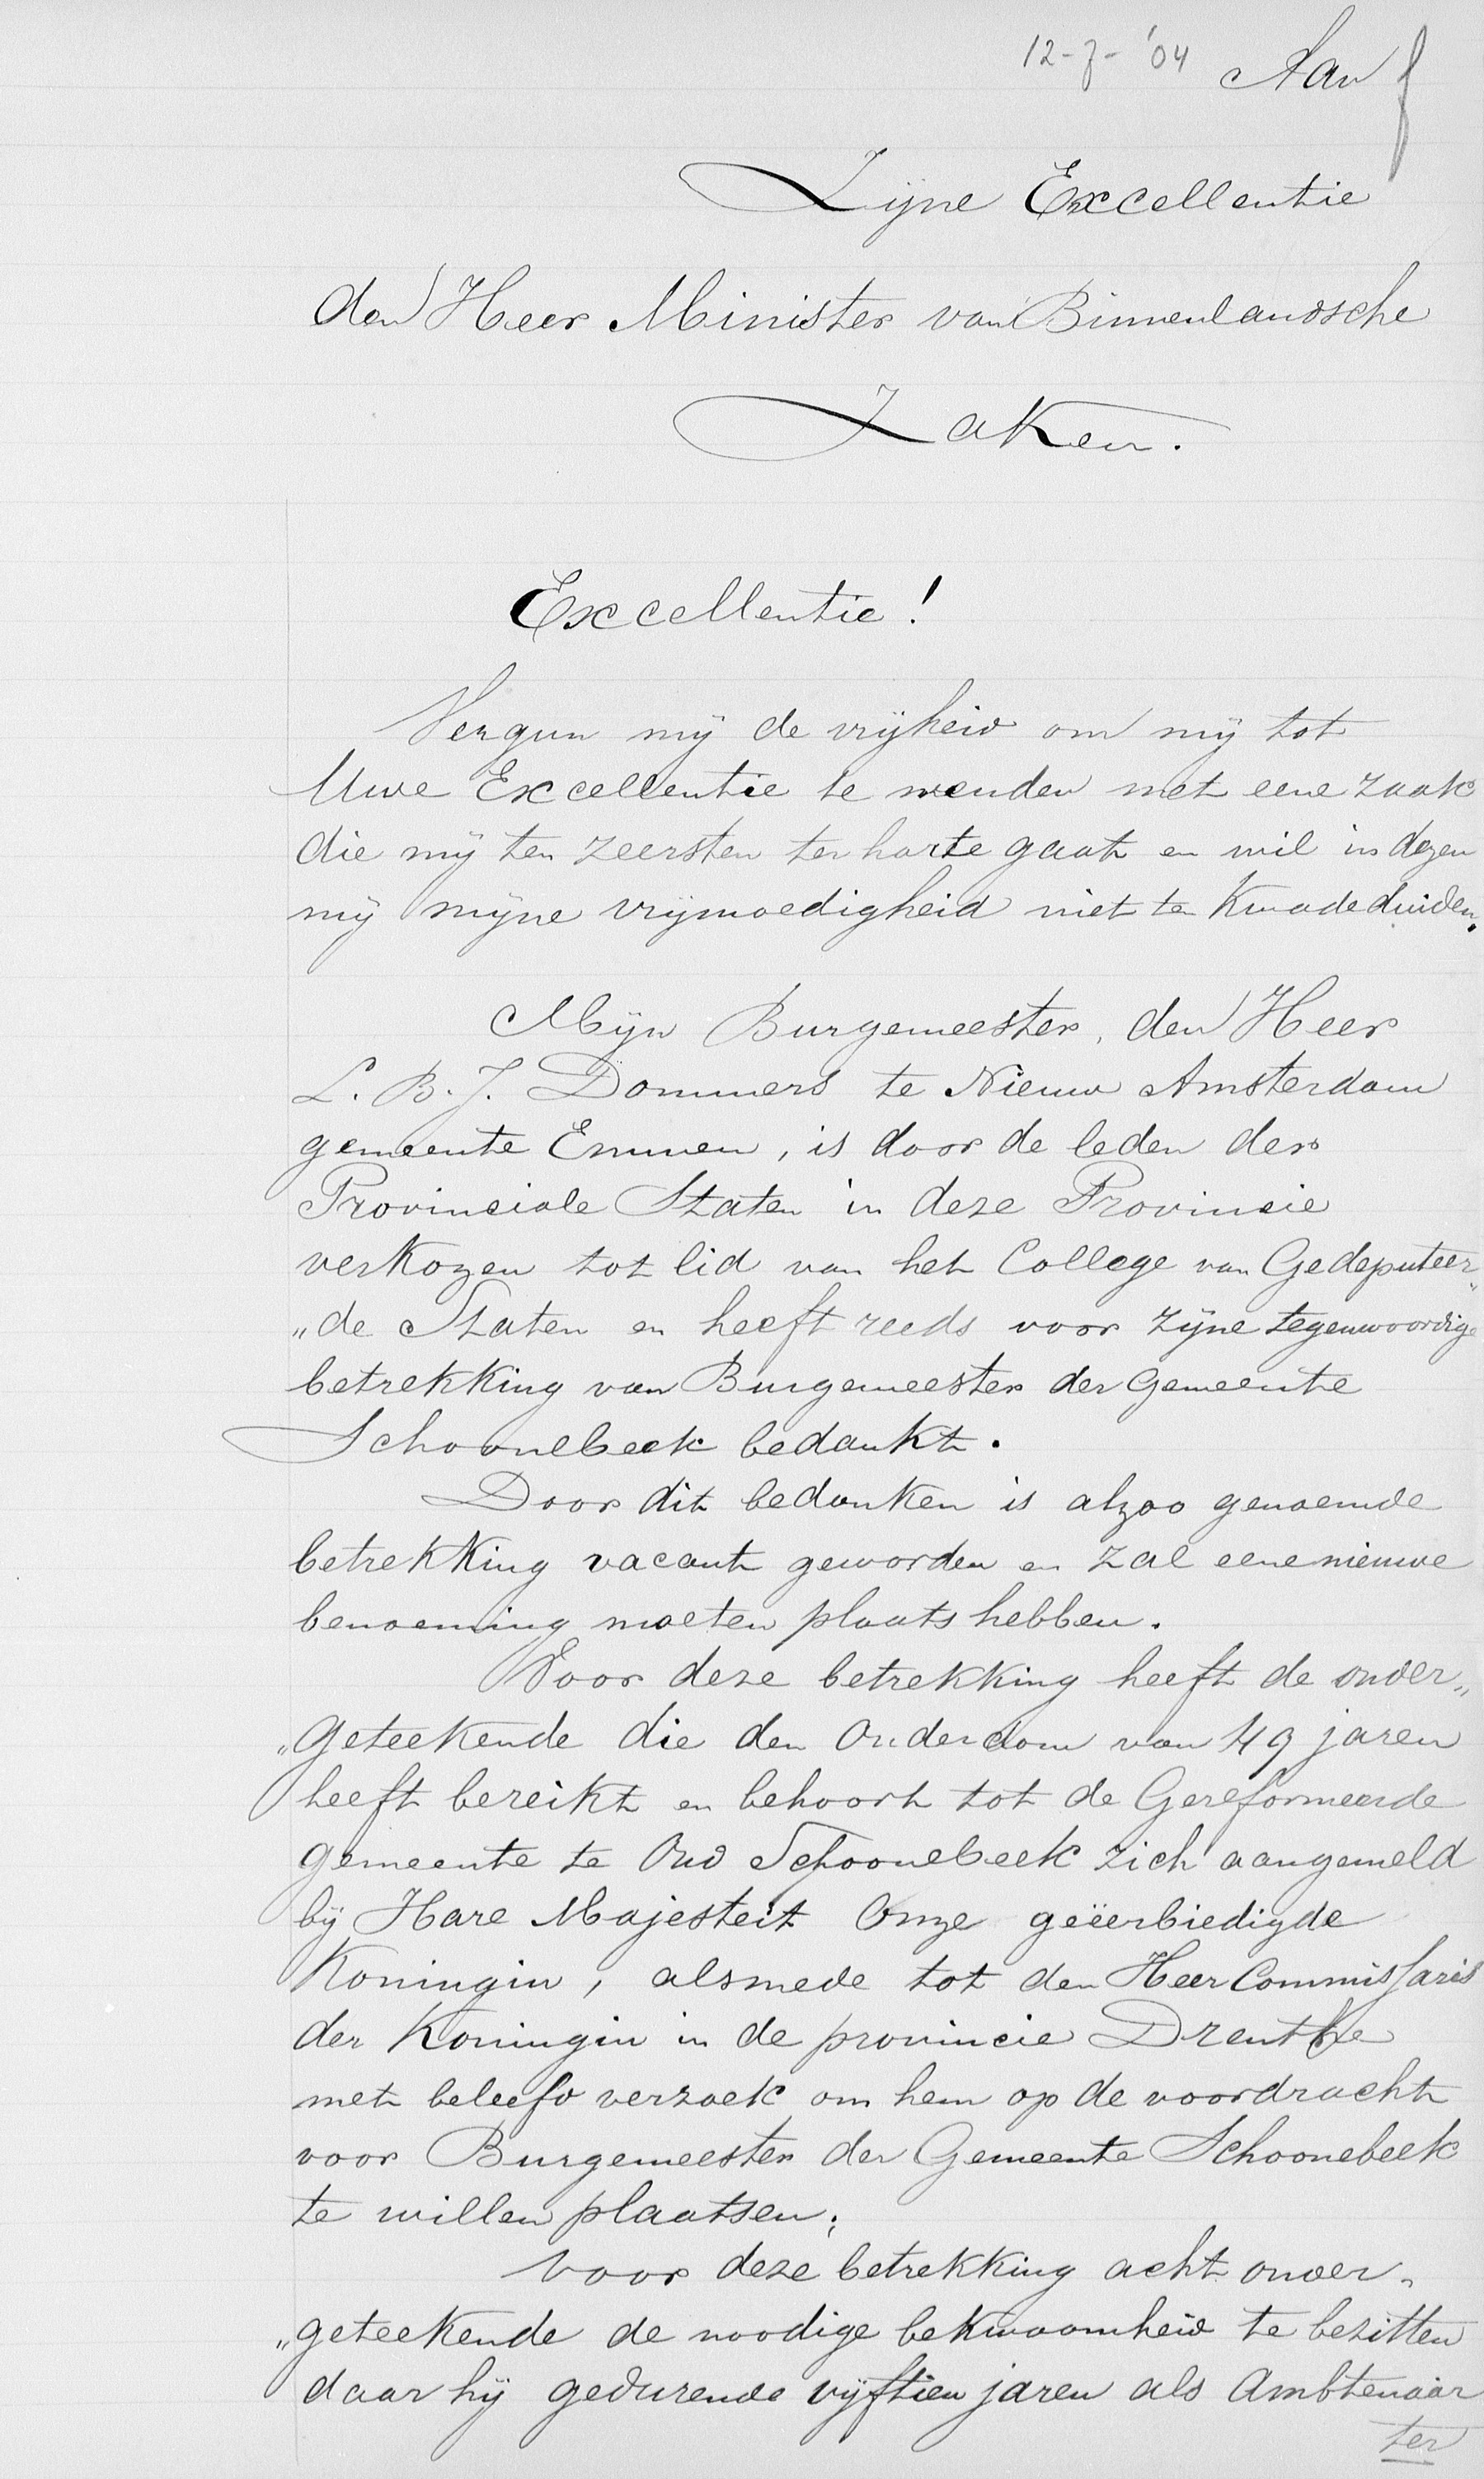 12-7-'04 Aan
Zijne Excellentie
den Heer Minister van Binnenlandsche
Zaken.
Excellentie!
Vergun mij de vrijheid om mij tot
Uwe Excellentie te wenden met eene zaak
die mij ten zeersten ter harte gaat en wil in dezen
mij mijne vrijmoedigheid niet ten kwade duiden.
Mijn Burgemeester, den Heer
L. B. J. Dommers te Nieuw Amsterdam
gemeente Emmen, is door de leden der
Provinciale Staten in deze Provincie
verkozen tot lid van het College van Gedeputeer„
„de Staten en heeft reeds voor zijne tegenwoordige
betrekking van Burgemeester der Gemeente
Schoonebeek bedankt.
Door dit bedanken is alzoo genoemde
betrekking vacant geworden en zal eene nieuwe
benoeming moeten plaats hebben.
Voor deze betrekking heeft de onder„
„geteekende die den Ouderdom van 49 jaren
heeft bereikt en behoort tot de Gereformeerde
gemeente te Oud Schoonebeek zich aangemeld
bij Hare Majesteit Onze geëerbiedigde
Koningin, alsmede tot den Heer Commissaris
der Koningin in de provincie Drenthe
met beleefd verzoek om hem op de voordracht
voor Burgemeester der Gemeente Schoonebeek
te willen plaatsen;
Voor deze betrekking acht onder„
„geteekende de noodige bekwaamheid te bezitten
daar hij gedurende vijftien jaren als Ambtenaar
ter